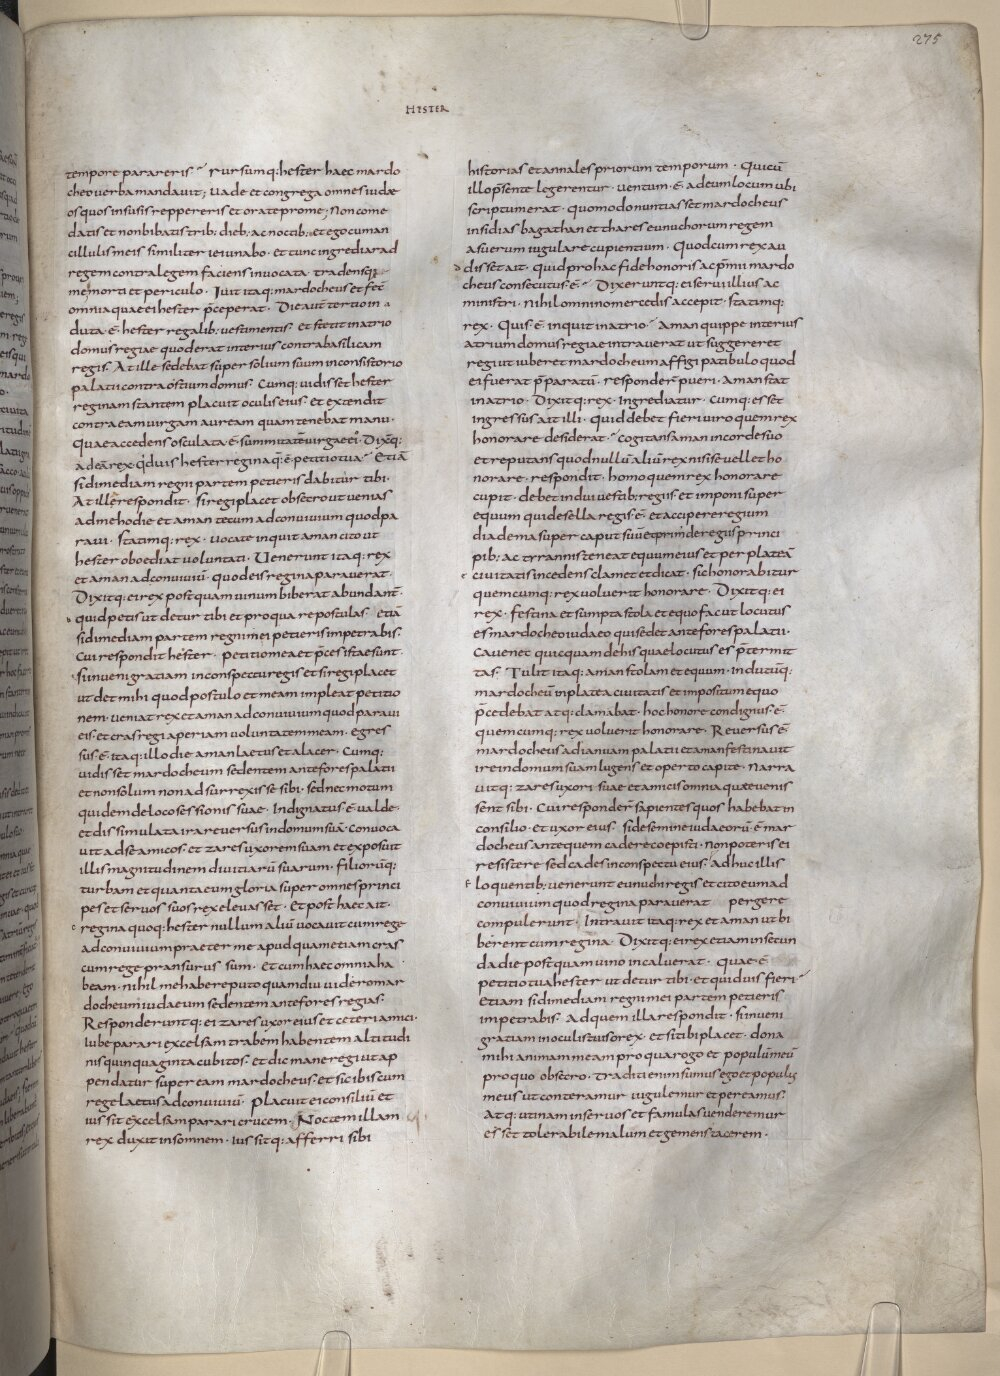 275
HESTER
tempore parareris? rursumq: hester haec mardo
cheo verba mandavit; Vade et congrega omnes iudae
os quos in susis reppereris et orate pro me; Non come
datis et non bibatis trib: dieb: ac noctib: et ego cum an
cillulis meis similiter ieiunabo · et tunc ingrediar ad
regem contra legem faciens invocata · tradensq:
me morti et periculo · Ivit itaq: mardocheus et fec̄
omnia quae ei hester p̄ceperat · Die aut tertio in
duta ē hester regalib: vestimentis · et stetit in atrio
domus regiae quod erat interius contra basilicam
regis · At ille sedebat super solium suum in consistorio
palatii contra ostium domus · Cumq: vidisset hester
reginam stantem placuit oculis eius · et extendit
contra eam virgam auream quam tenebat manu ·
Quae accedens osculata ē summitatē virgae ei · Dix̄q:
ad eā rex qd vis hester regina q̄ ē petitio tua? Etiā
si dimediam regni partem petieris dabitur tibi ·
At illa respondit · si regi placet obsecro ut venias
ad me hodie et aman tecum ad convivium quod pa
ravi · statimq: rex · vocate inquit aman cito ut
hester oboediat voluntati · Venerunt itaq: rex
et aman ad conviviū · quod eis regina paraverat ·
Dixitq: ei rex postquam vinum biberat abundanr̄ ·
quid petis ut detur tibi et pro qua re postulas · etiā
si dimediam partem regni mei petieris impetrabis ·
Cui respondit hester · petitio mea et p̄ces istae sunt ·
si inveni gratiam in conspectu regis et si regi placet
ut det mihi quod postulo et meam impleat petitio
nem · veniat rex et aman ad convivium quod paravi
eis · et cras regi aperiam voluntatem meam · egres
sus ē itaq: illo die aman laetus et alacer · Cumq:
vidisset mardocheum sedentem ante fores palatii
et non solum non adsurrexisse sibi · sed nec motum
quidem de loco sessionis suae · Indignatus ē valde ·
et dissimulata ira reversus in domum suā · Convoca
vit ad se amicos · et zares uxorem suam et exposuit
illis magnitudinem divitiarū suarum · filiorūq:
turbam et quanta eum gloria super omnes princi
pes et servos suos rex elevasset · et post haec ait ·
regina quoq: hester nullum aliū vocavit cum rege
ad convivium praeter me apud quam etiam cras
cum rege pransurus sum · et cum haec omnia ha
beam · nihil me habere puto quamdiu videro mar
docheum iudaeum sedentem ante fores regias ·
Responderuntq: ei zares uxor eius et ceteri amici ·
Iube parari excelsam trabem habentem altitudi
nis quinquaginta cubitos · et dic mane regi ut ap
pendatur super eam mardocheus · et sic ibis cum
rege laetus ad conviviū · Placuit ei consiliū et
iussit excelsam parari crucem · Noctem illam
rex duxit insomnem · iussitq: afferri sibi
historias et annales priorum temporum · Qui cū
illo p̄sente legerentur · ventum ē ad eum locum ubi
scriptum erat · quomodo nuntiasset mardocheus
insidias bagathan et thares eunuchorum regem
asuerum iugulare cupientium · Quod cum rex au
disset ait · quid pro hac fide honoris ac p̄mii mardo
cheus consecutus ē? Dixeruntq: ei servi illius ac
ministri · Nihil omnino mercedis accepit · statimq:
rex · Quis ē inquit in atrio? Aman quippe interius
atrium domus regiae intraverat ut suggereret
regi ut iuberet mardocheum affigi patibulo quod
ei fuerat p̄paratū · responder̄ pueri · Aman stat
in atrio · Dixitq: rex · Ingrediatur · Cumq: esset
ingressus ait illi · Quid debet fieri viro quem rex
honorare desiderat? Cogitans aman in corde suo
et reputans quod nullū aliū rex nisi se vellet ho
norare · respondit · homo quem rex honorare
cupit · debet indui vestib: regiis · et imponi super
equum qui de sella regis ē · et accipere regium
diadema super caput suū et prim de regiis princi
pib: ac tyrannis teneat equum eius et per plateā
civitatis incedens clamet et dicat · sic honorabitur
quemcumq: rex voluerit honorare · Dixitq: ei
rex · festina et sumpta stola et equo fac ut locutus
es mardocheo iudaeo qui sedet ante fores palatii ·
Cave ne quicquam de his quae locutus es p̄termit
tas · Tulit itaq: aman stolam et equum · indutūq:
mardocheū in platea civitatis et impositum equo
p̄cedebat atq: clamabat · hoc honore condignus ē
quemcumq: rex voluerit honorare · Reversus ē
mardocheus ad ianuam palatii et aman festinavit
ire in domum suam lugens et operto capite · Narra
vitq: zares uxori suae et amicis omnia quae evenis
sent sibi · Cui responder̄ sapientes quos habebat in
consilio · et uxor eius · si de semine iudaeorū ē mar
docheus ante quem cadere coepisti · non poteris ei
resistere sed cades in conspectu eius · Adhuc illis
loquentib: venerunt eunuchi regis et cito eum ad
convivium quod regina paraverat pergere
compulerunt · Intravit itaq: rex et aman ut bi
berent cum regina · Dixitq: ei rex etiam in secun
da die postquam vino incaluerat · quae ē
petitio tua hester ut detur tibi · et quid vis fieri?
Etiam si dimediam regni mei partem petieris
impetrabis · Ad quem illa respondit · si inveni
gratiam in oculis tuis o rex · et si tibi placet · dona
mihi animam meam pro qua rogo et populū meū
pro quo obsecro · traditi enim sumus ego et populus
meus ut conteramur iugulemur et pereamus ·
Atq: utinam in servos et famulas venderemur
esset tolerabile malum et gemens tacerem ·